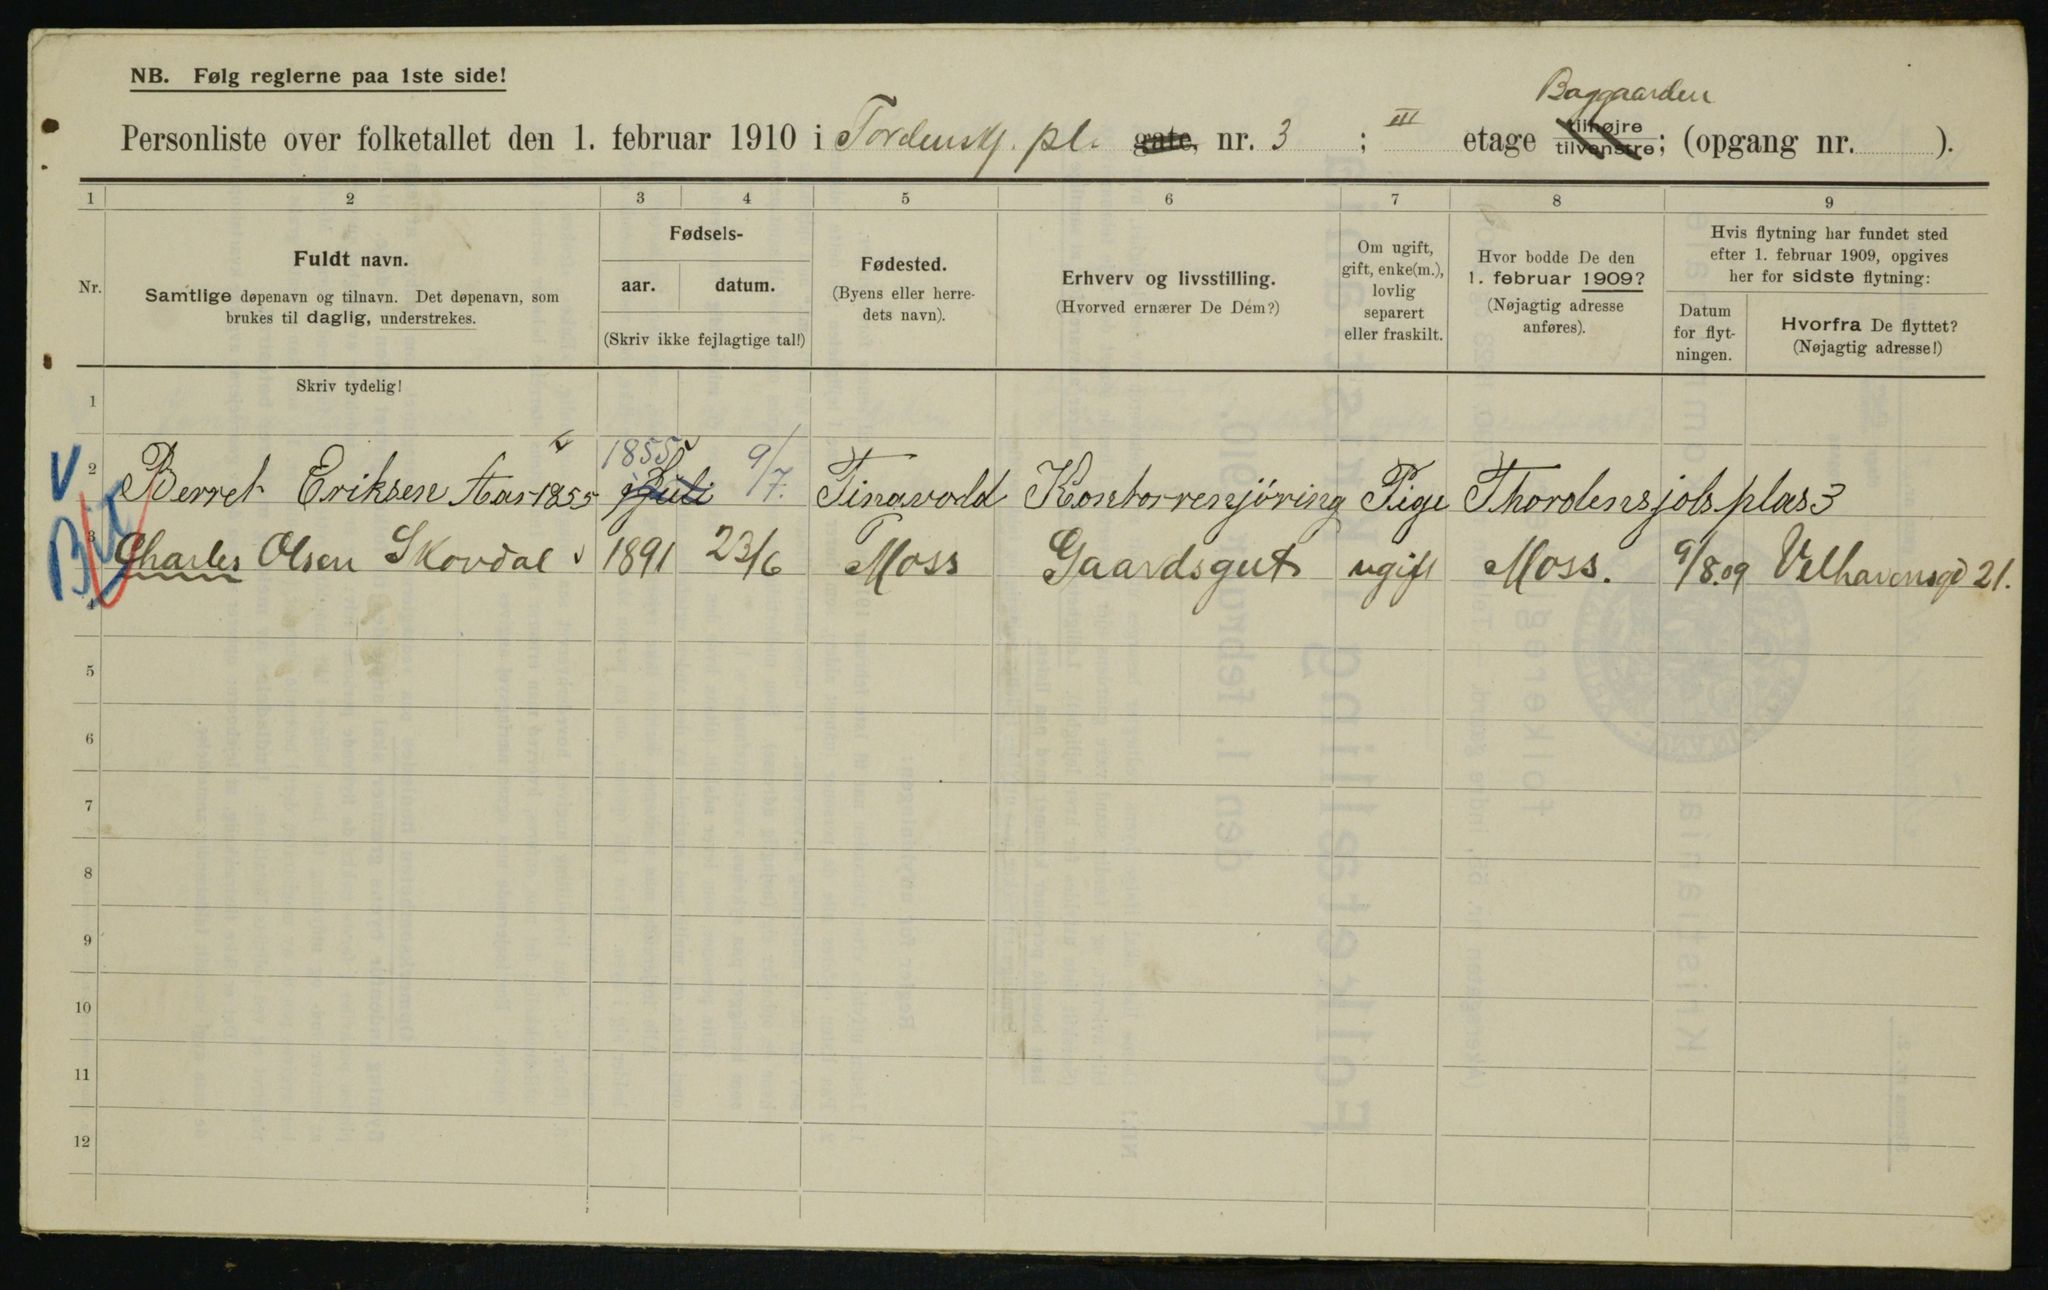 NB. Følg reglerne paa 1ste side!
Baggaarden
Personliste over folketallet den 1. februar 1910 i Tordenskj. pl. gate, nr. 3 ; III etage tilhøjre tilvenstre; (opgang nr. ).
1 2 3 4 5 6 7 8 9
Nr.
Fuldt navn.
Samtlige døpenavn og tilnavn. Det døpenavn, som
brukes til daglig, understrekes.
Skriv tydelig!
Fødsels-
aar. datum.
(Skriv ikke fejlagtige tal!)
Fødested.
(Byens eller herre-
dets navn).
Erhverv og livsstilling.
(Hvorved ernærer De Dem?)
Om ugift,
gift, enke(m.),
lovlig
separert
eller fraskilt.
Hvor bodde De den
1. februar 1909?
(Nøjagtig adresse
anføres).
Hvis flytning har fundet sted
efter 1. februar 1909, opgives
her for sidste flytning:
Datum
for flyt-
ningen.
Hvorfra De flyttet?
(Nøjagtig adresse!)
1
2 Berret Eriksen Aar 1855 1855 Juli 9/7. Tinavold Kontorrenjöring Pige Thordensjols plas 3
3 Charles Olsen Skovdal 1891 23/6 Moss Gaardsgut ugift Moss. 9/8.09 Velhavensgd 21.
4
5
6
7
8
9
10
11
12